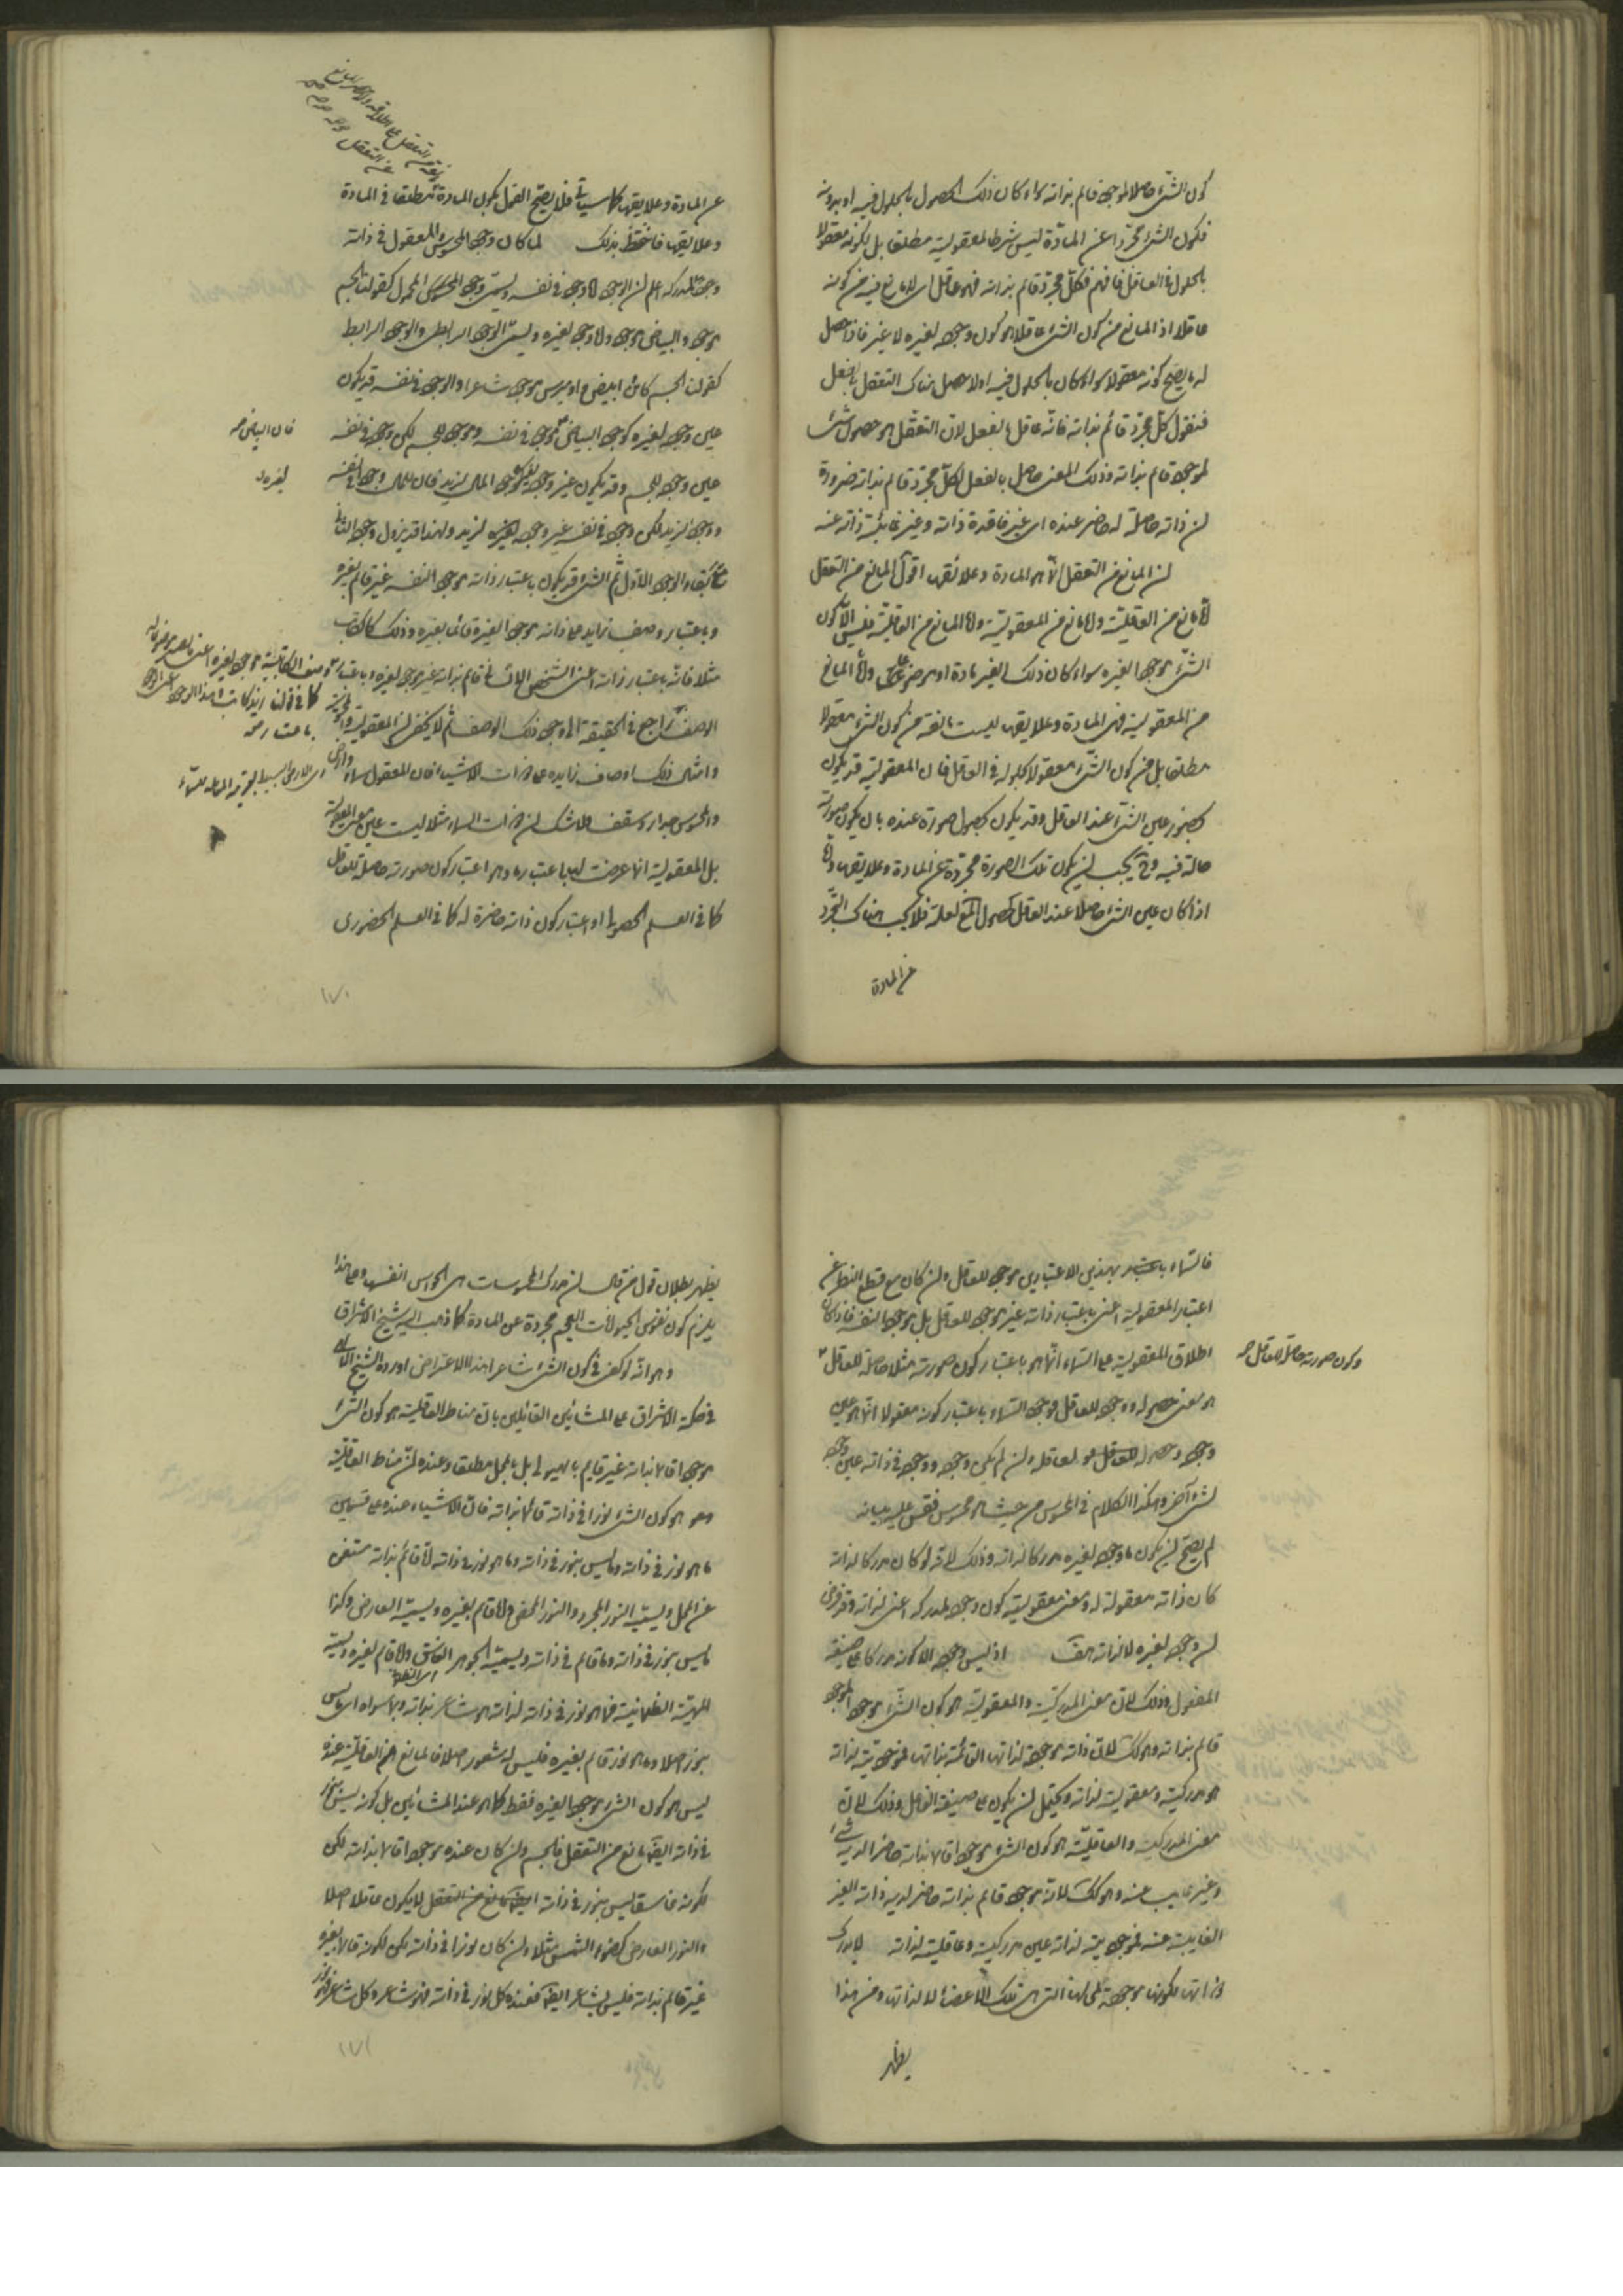 كون الشئ حاصلا لموجود قائم بذاته سواء كان ذلك الحصول بالحلول فيه او بدونه
فكون الشئ مجردا عن المادة ليس شرطا لمعقوليته مطلقا بل لكونه معقولا
بالحلول في العاقل فافهم فكل مجرد قائم بذاته فهو عاقل اى لا مانع فيه من كونه
عاقلا اذ المانع من كون الشئ عاقلا هو كون وجوده لغيره لا غير فاذا حصل
له ما يصح كونه معقولا سواء كان بالحلول فيه او لا حصل هناك التعقل بالفعل
فنقول كل مجرد قائم بذاته فانه عاقل بالفعل لان التعقل هو حصول شئ
لموجود قائم بذاته وذلك المعنى حاصل بالفعل لكل مجرد قائم بذاته ضرورة
ان ذاته حاصلة له حاضر عنده اى غير فاقدة ذاته وغير غائبة ذاته عنه
ان المانع عن التعقل انما هو المادة وعلائقها اقول المانع من التعقل
اما مانع من العاقلية واما مانع من المعقولية واما المانع من العاقلية فليس الا كون
الشئ موجودا لغيره سواء كان ذلك الغير مادة او موضوعا واما المانع
من المعقولية فهى المادة وعلايقها ليست مانعة من كون الشئ معقولا
مطلقا بل من كون الشئ معقولا بحلوله في العاقل فان المعقولية قد يكون
بحضور عين الشئ عند العاقل وقد يكون بحصول صورة عنده بان يكون صورته
حالة فيه وح يجب ان يكون تلك الصورة مجردة عن المادة وعلايقها واما
اذا كان عين الشئ حاصلا عند العاقل كحصول المعلول لعلته فلا يجب هناك التجرد
عن المادة
عن التعقل
عن المادة وعلايقها كما سيأتى فلا يصح القول بكون المادة مطلقا في المادة
وعلايقها فاحتفظ بذلك لما كان وجود المحسوس والمعقول في ذاته
وجوده لمدركه اعلم ان الوجود اما وجود في نفسه ويسمى وجود المحمول كقولنا الجسم
موجود والبياض موجود واما وجود لغيره ويسمى الوجود الرابطى والوجود الرابط
كقولنا الجسم كائن ابيض او يوجد شاعرا والوجود في نفسه قد يكون
عين وجوده لغيره كوجود البياض فوجوده في نفسه وهو وجوده للجسم لكن وجوده في نفسه
فان البياض
عين وجوده للجسم وقد يكون غير وجوده لغيره كوجود المال لزيد فان للمال وجودا في نفسه
ووجودا لزيد لكن وجوده في نفسه غير وجوده لغيره لزيد ولهذا قد يزول وجوده الثانى
مع بقاء الوجود الاول ثم الشئ قد يكون باعتبار ذاته موجودا لنفسه غير قائم بغيره
وباعتبار وصف زايد على ذاته موجودا لغيره قائما بغيره وذلك كالكاتب
مثلا فانه باعتبار ذاته اعنى الشخص الانسانى قائم بذاته غير موجود لغيره وباعتبار وصف الكاتبية موجود لغيره
كما في قولنا زيد كاتب
الوصف راجع في الحقيقة الى وجود ذلك الوصف ثم لا يخفى ان المعقولية
وامثال ذلك اوصاف زايدة على ذوات الاشياء فان المعقول سماء وارض
والمحسوس جدار وسقف ولا شك ان ذات السماء مثلا ليست عين معنى المعقولية
بل المعقولية انما عرضت لها باعتبار ما وهو اعتبار كون صورته حاصلة للعاقل
كما في العلم الحصولى او اعتبار كون ذاته حاضرة له كما في العلم الحضورى
١٧٠
فالسماء باعتبار بهذين الاعتبارين موجود للعاقل وان كان مع قطع النظر عن
اعتبار المعقولية اعنى باعتبار ذاته غير موجود للعاقل بل موجودا لنفسه فاذا كان
اطلاق المعقولية على السماء انما هو باعتبار كون صورته مثلا حاصلة للعاقل
وكون صورته حاصلة للعاقل
هو معنى حصوله ووجوده للعاقل فوجود السماء باعتبار كونه معقولا انما هو عين
وجوده وحصوله لعاقله وان لم يكن وجوده في ذاته عين وجوده
لشئ آخر وهكذا الكلام في المحسوس من حيث هو محسوس فقس عليه بيانه
لم يصح ان يكون ما وجوده لغيره مدركا لذاته وذلك لانه لو كان مدركا لذاته
كان ذاته معقولة له ومعنى معقوليته كون وجوده لمدركه اعنى لذاته وقد فرض
ان وجوده لغيره لا لذاته هف اذ ليس وجوده الا كونه مدركا على صيغة
المفعول وذلك لان معنى المدركية والمعقولية هو كون الشئ موجودا لموجود
قائم بذاته وهو كذلك لان ذاته موجودة لذاتها القائمة بذاتها فموجوديته لذاته
هو مدركيته ومعقوليته لذاته ويحتمل ان يكون على صيغة الفاعل وذلك لان
معنى المدركية والعاقلية هو كون الشئ موجودا قائما بذاته حاضرا لديه شئ
وغير غايب عنه وهو كذلك لانه موجود قائم بذاته حاضر لديه ذاته الغير
الغايبة عنه فموجوديته لذاته عين مدركيته وعاقليته لذاته لا يدرك
ذواتها لكونها موجودة لمحلها التى هى تلك الاعضاء لا لذاتها ومن هذا
يظهر
يظهر بطلان قول من قال ان مدرك المحسوسات هى الحواس انفسها وعلى هذا
يلزم كون نفوس الحيوانات العجم مجردة عن المادة كما ذهب اليه شيخ الاشراق
وهو انه لو كفى في كون الشئ شاعرا هذا الاعتراض اورده الشيخ الالهى
في حكمة الاشراق على المشائين القائلين بان مناط العاقلية هو كون الشئ
موجودا قائما بذاته غير قايم بالهيولى بل بالمحل مطلقا وعنده ان مناط العاقلية
هو كون الشئ نورا في ذاته قائما بذاته فان الاشياء عنده على قسمين
ما هو نور في ذاته وما ليس بنور في ذاته وما هو نور في ذاته اما قائم بذاته مستغن
عن المحل ويسميه النور المجرد والنور المحض واما قائم بغيره ويسميه العارض وكذا
ما ليس بنور في ذاته اما قائم في ذاته ويسميه الجوهر الغاسق واما قائم بغيره ويسميه
الهيئة الظلمانية فما هو نور في ذاته لذاته هو شاعر بذاته وبما سواه اى ما ليس
بنور اصلا وما هو نور قائم بغيره فليس له شعور اصلا فالمانع من العاقلية عنده
ليس هو كون الشئ موجودا لغيره فقط كما هو عند المشائين بل كونه ليس بنور
في ذاته ايضا مانع من التعقل فالجسم وان كان عنده موجودا قائما بذاته لكن
لكونه غاسقا ليس بنور في ذاته لا يكون عاقلا اصلا
والنور العارض كضوء الشمس مثلا وان كان نورا في ذاته لكن لكونه قائما بغيره
غير قائم بذاته فليس بشاعر ايضا فعنده كل نور في ذاته فهو شاعر وكل شاعر فهو نور
١٧١